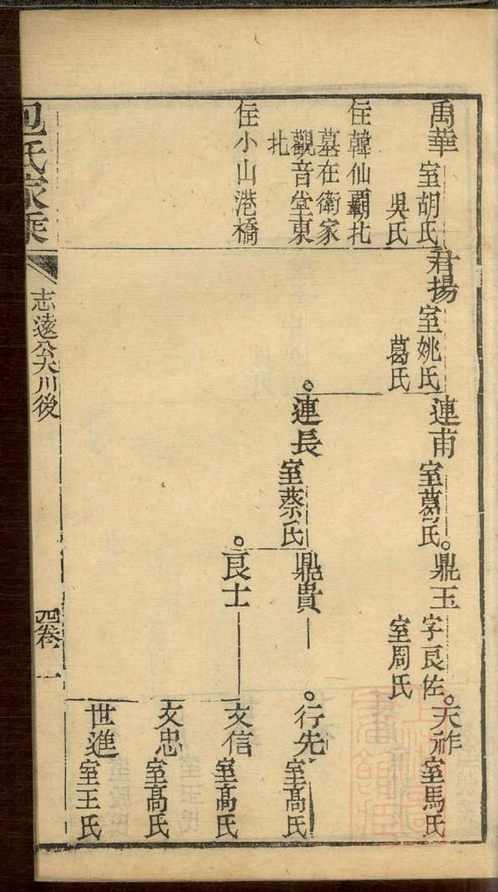 禹華
室胡氏
吳氏
住韓仙壩北
墓在衛家
觀音堂東
北
住小山港橋
君揚
室姚氏
葛氏
連甫
室葛氏
連長
室蔡氏
鼎玉
字良佐
室周氏
鼎貴
良士
天祚
室馬氏
行先
室高氏
文信
室高氏
文忠
室高氏
世進
室王氏
包氏家乘
志遠公大川後
四卷
一